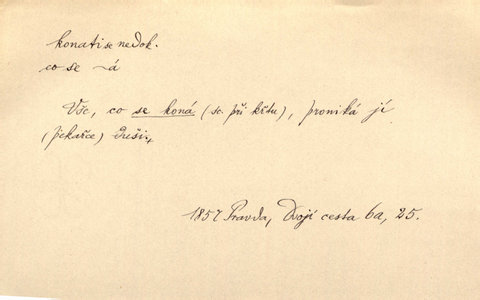 konati se nedok.
co se ~á
Vše, co se koná (sc. při křtu), proniká jí
(pekařce) duši,
1857 Pravda, Dvojí cesta 6a, 25.